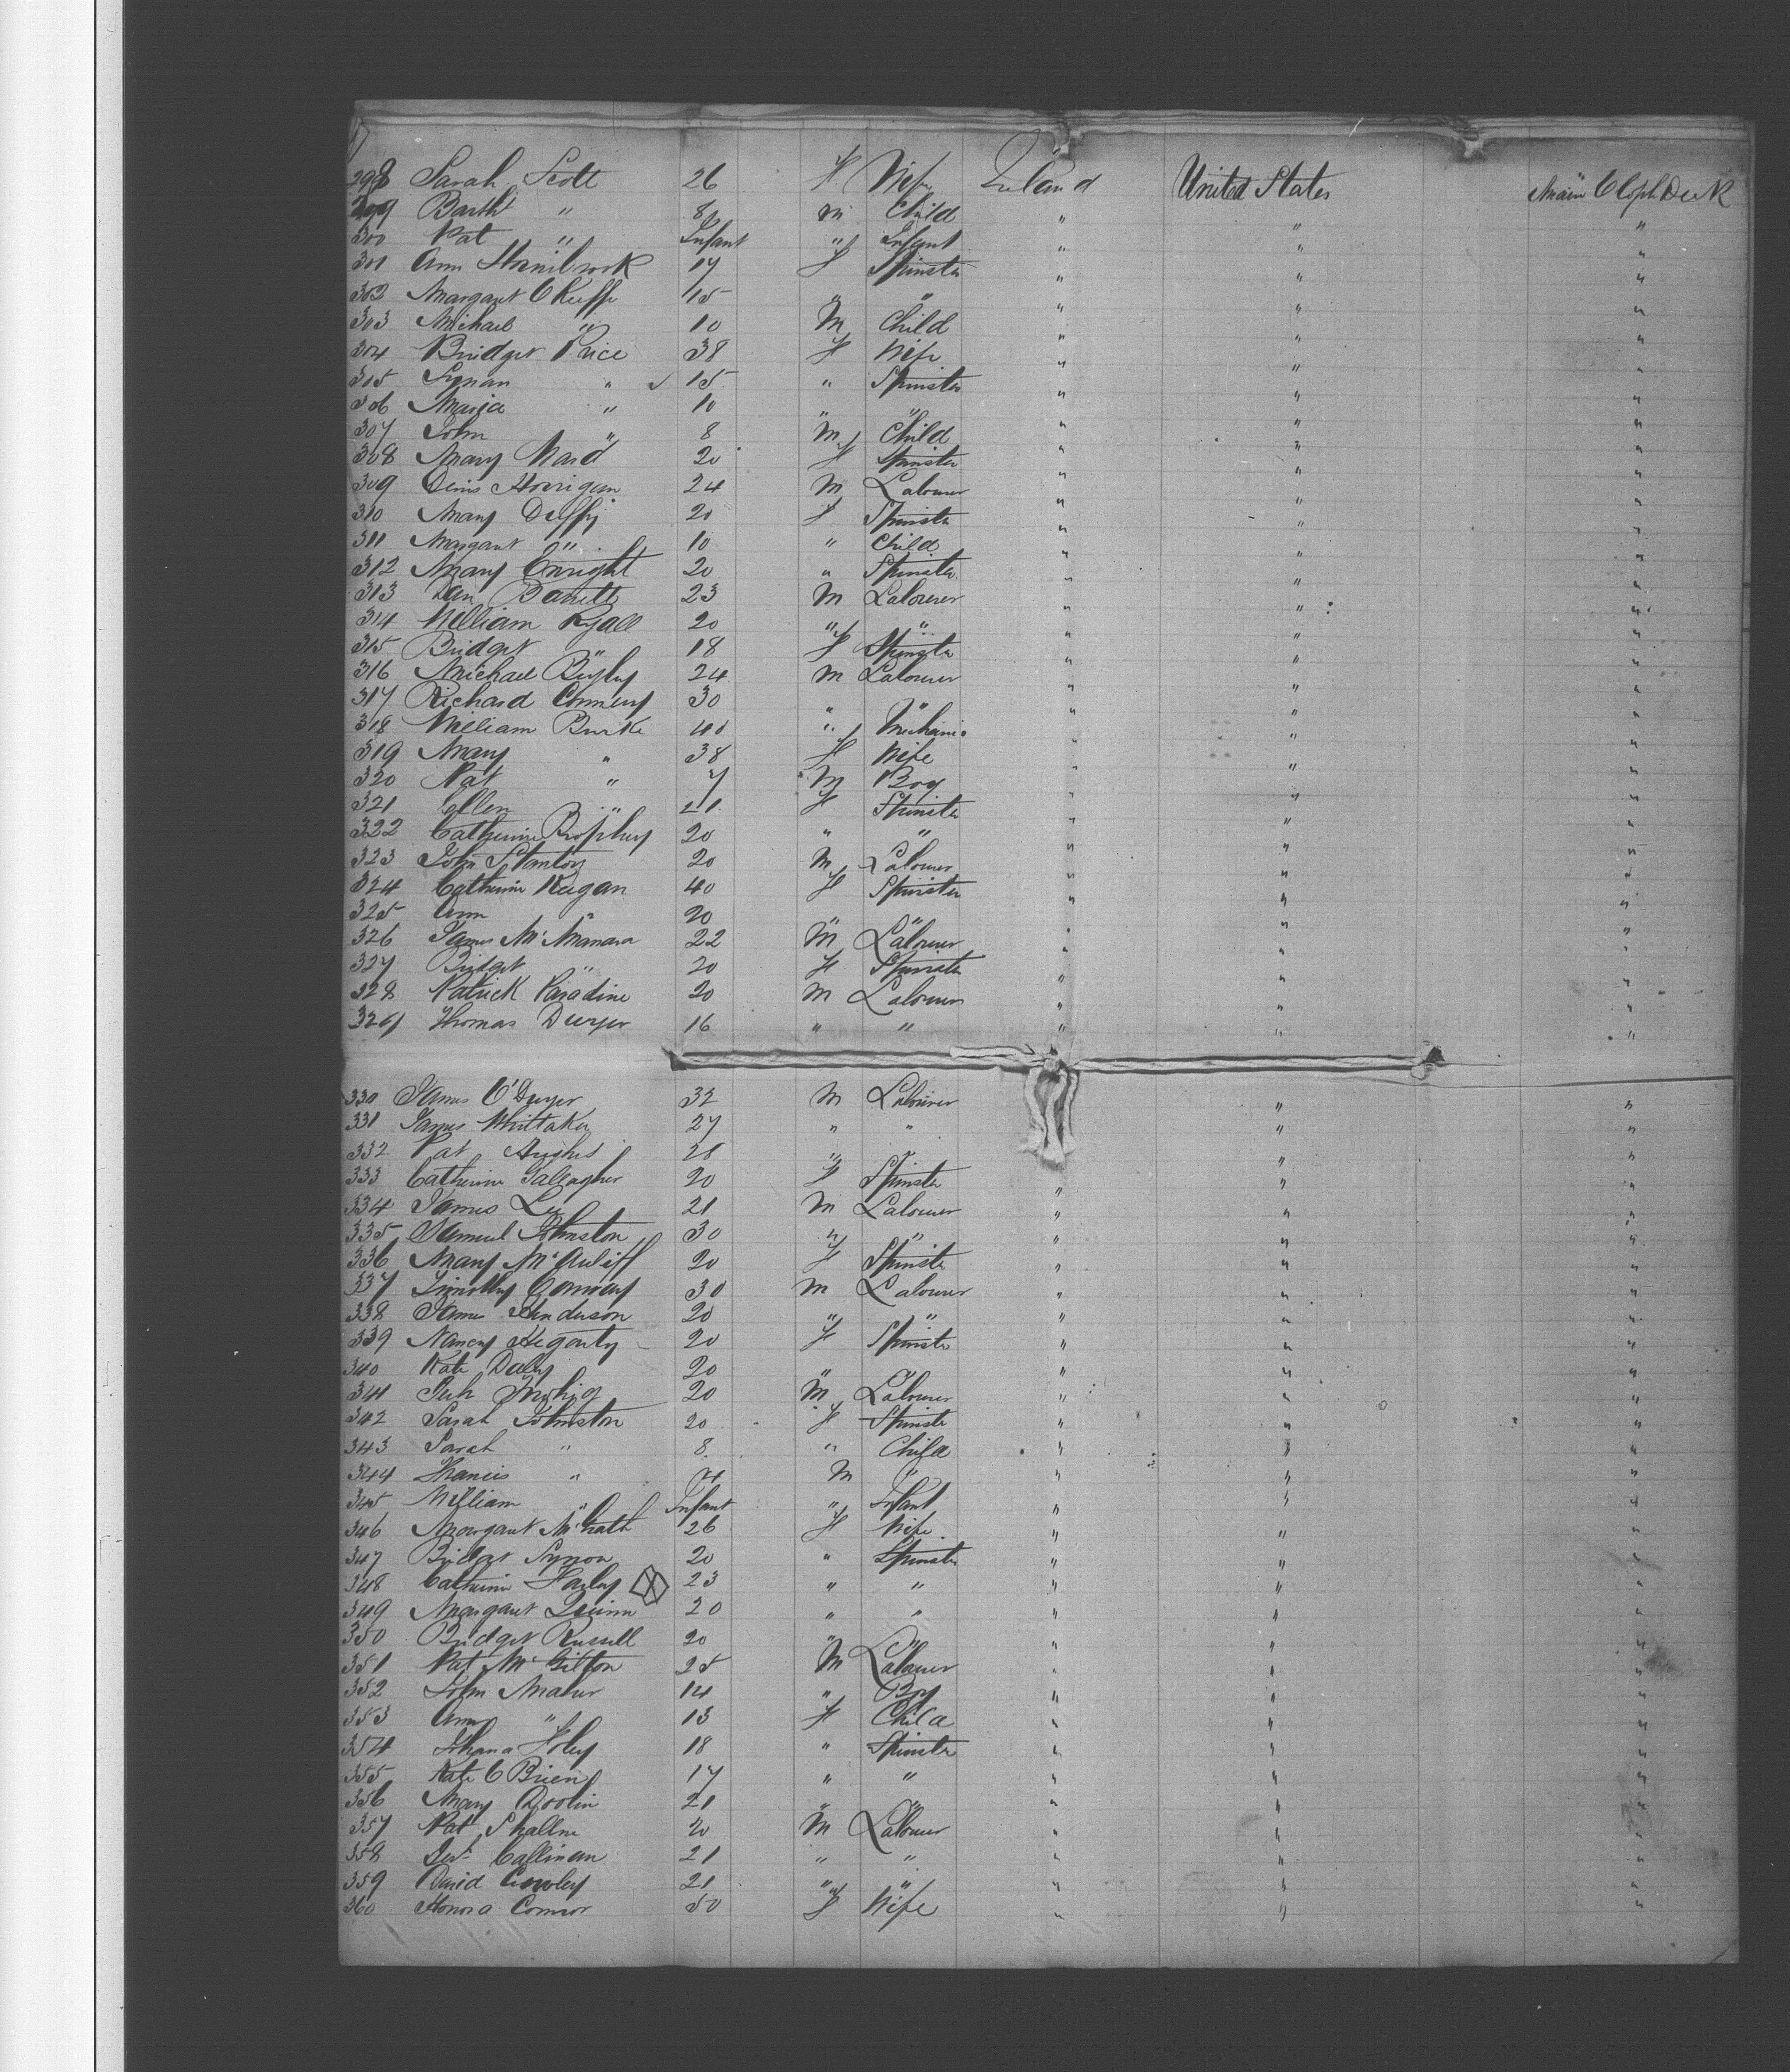 298 Sarah Scott 26 F Wife Ireland United States Main Deck
299 Barth " 8 m Child " " "
300 Pat " Infant " Infant " " "
301 Ann Hornibrook 17 F Spinster " " "
302 Margaret O Keeffe 15 " " " " "
303 Michael " 10 M Child " " "
304 Bridget Price 38 F Wife " " "
305 " 15 " Spinster " " "
306 Maria " 10 " " " " "
307 John " 8 M Child " " "
308 Mary Ward 20 F Spinster " " "
309 Denis Horrigan 24 M Labourer " " "
310 Mary Duffy 20 F Spinster " " "
311 Margaret " 10 " Child " " "
312 Mary Enright 20 " Spinster " " "
313 Dan Barrett 23 M Labourer " " "
314 William Ryall 20 " " " " "
315 Bridget " 18 F Spinster " " "
316 Michael 24 M Labourer " " "
317 Richard 30 " " " " "
318 William Burke 40 " Mechanic " " "
319 Mary " 38 F Wife " " "
320 Pat " 7 M Boy " " "
321 Ellen " 21 F Spinster " " "
322 Catherine Brophey 20 " " " " "
323 John Stanley 20 M Labourer " " "
324 Catherine Keegan 40 F Spinster " " "
325 Ann " 20 " " " " "
326 James McManara 22 M Labourer " " "
327 Bridget " 20 F Spinster " " "
328 Patrick Paradine 20 M Labourer " " "
329 Thomas Dwyer 16 " " " " "
330 James O'Dwyer 32 M Labourer " "
331 James Whittaker 27 " " " "
332 Pat Hughes " " " "
333 Catherine Gallagher 20 F Spinster " " "
334 James Lee 21 M Labourer " " "
335 Samuel Johnston 30 " " " " "
336 Mary McAuliff 20 F Spinster " " "
337 Timothy Conway 30 M Labourer " " "
338 James Henderson 20 " " " " "
339 Nancy Hegarty 20 F Spinster " " "
340 Kate Daly 20 " " " " "
341 20 M Labourer " " "
342 Sarah Johnston 20 F Spinster " " "
343 Sarah " 8 " Child " " "
344 Francis " M " " " "
345 William " Infant " Infant " " "
346 Margaret McGrath 26 F Wife " " "
347 Bridget 20 " Spinster " " "
348 Catherine 23 " " " " "
349 Margaret Quinn 20 " " " " "
350 Bridget Russell 20 " " " " "
351 Pat 25 M Labourer " " "
352 John Maher 14 " Boy " " "
353 " 13 F Child " " "
354 Johana Foley 18 " Spinster " " "
355 Kate O Brien 17 " " " " "
356 Mary Doolin 21 " " " " "
357 Pat 20 M Labourer " " "
358 Callinan 21 " " " " "
359 David Cowley 21 " " " " "
360 Honora Connor 50 F Wife " " "